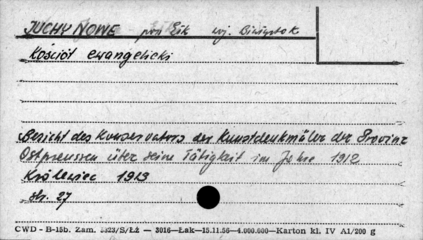 JUCHY NOWE pow. Ełk woj. Białystok
Kościół ewangelicki
Bericht des Konservators der Kunstdenkmäler der Provinz
Ostpreussen über seine Tätigkeit im Jahre 1912
Królewiec 1913
str. 27
CWD - B-15b. Zam. S/Łż — 3016—Łak—15.11.56—4.000.000—Karton kl. IV A1/200 g